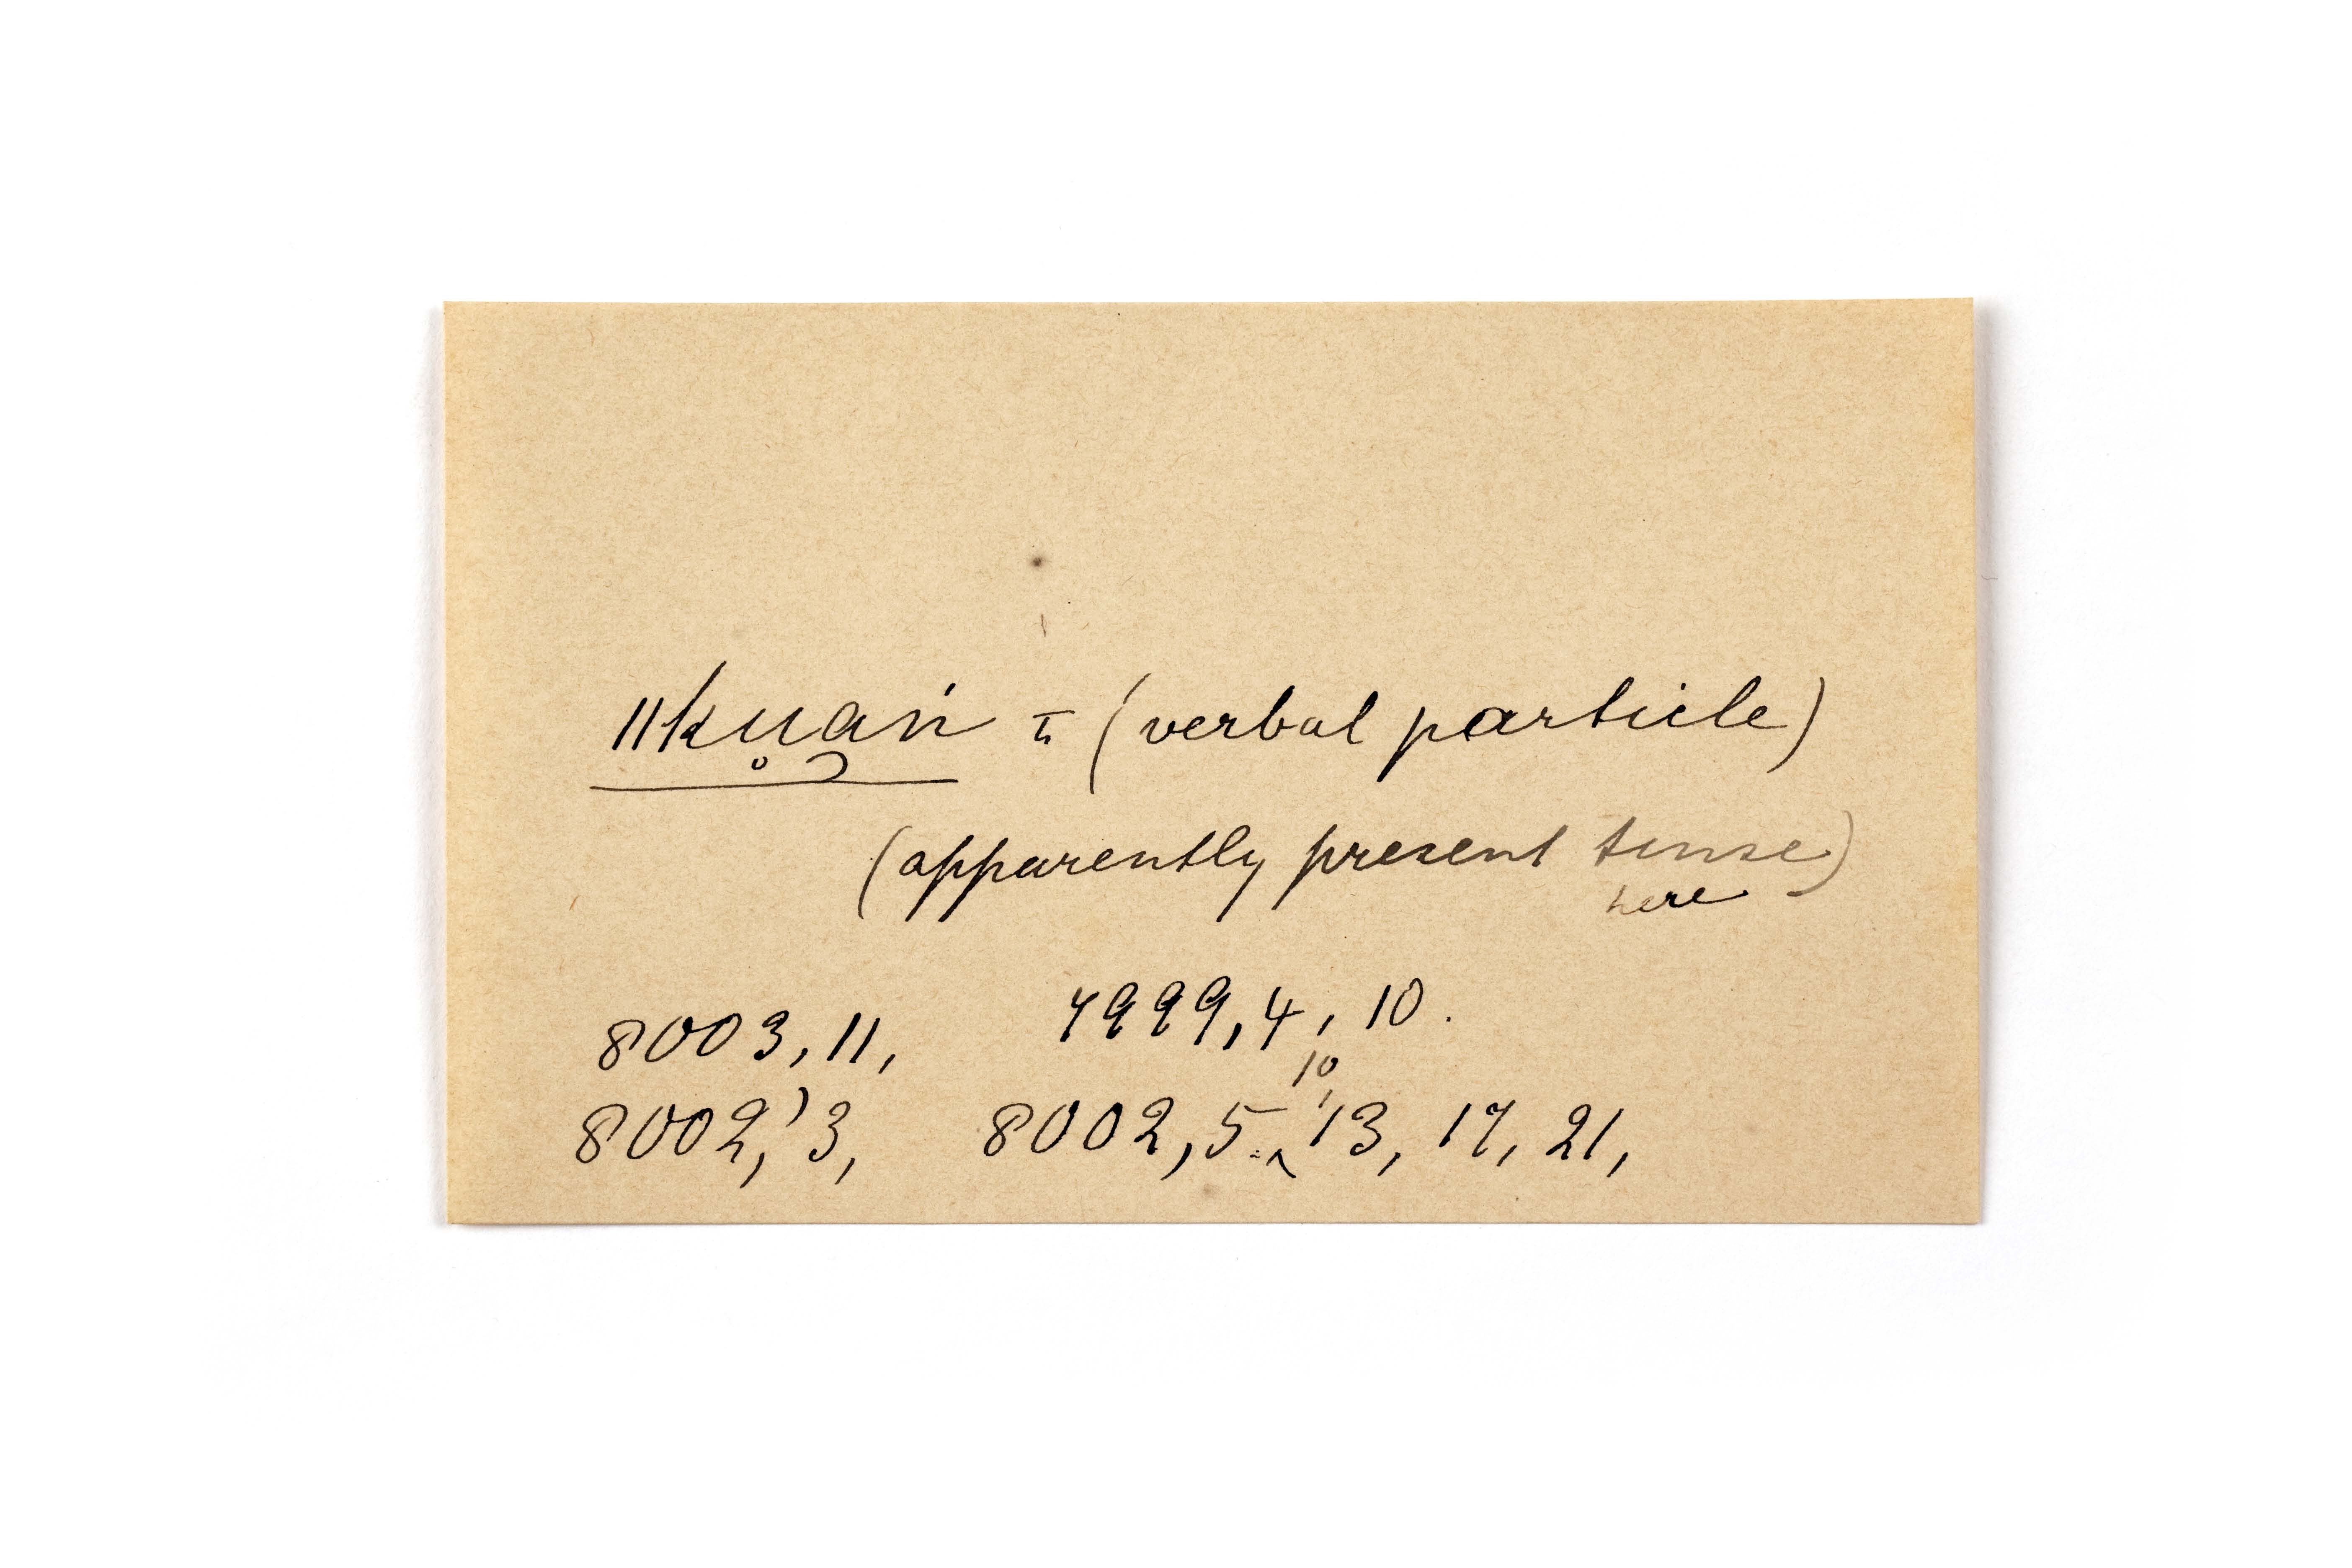 ǁku̥a̰ṅ = (verbal particle)
(apparently present tense)
here
8003, 11, 7999, 4, 10.
8002,' 3, 8002, 5. ‸ 10, 13, 17, 21,